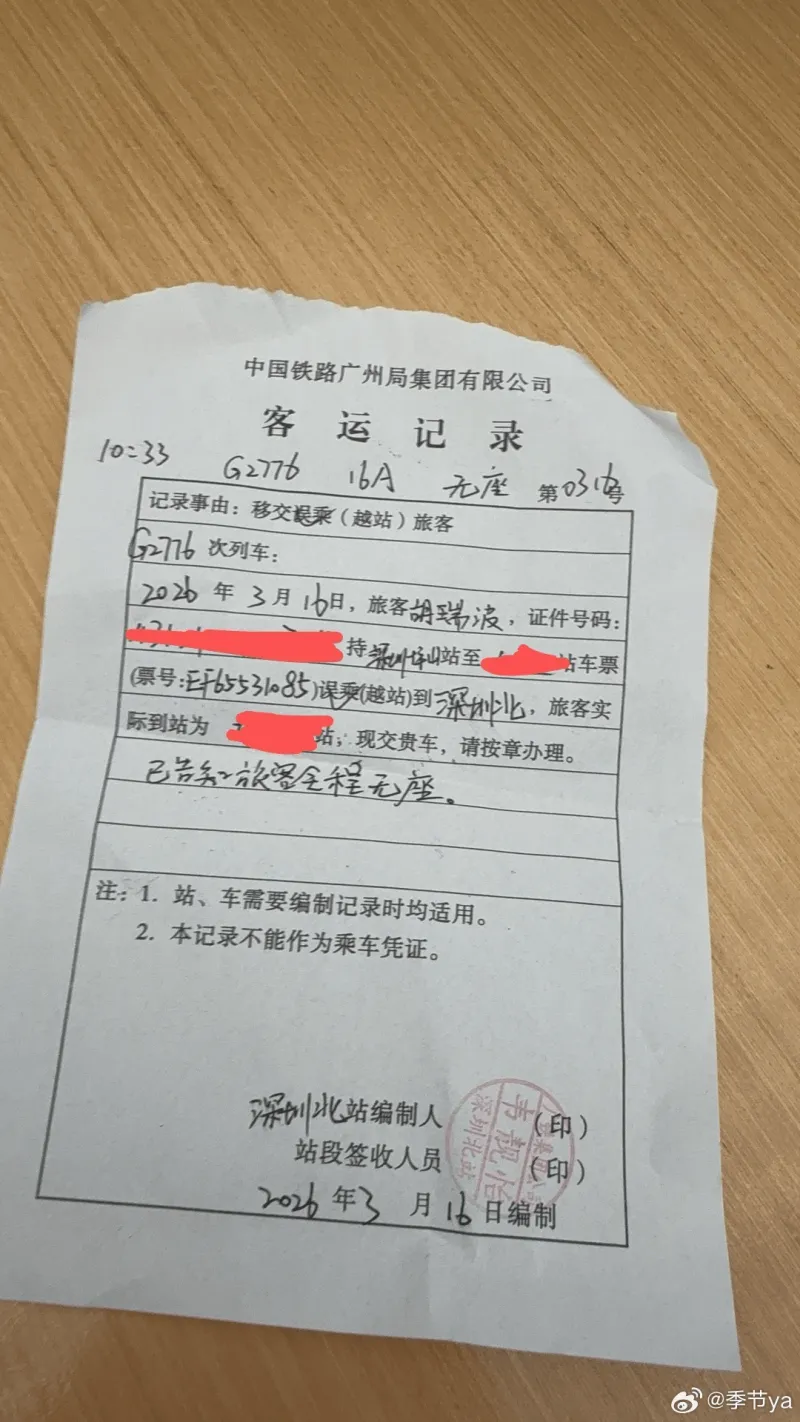 中国铁路广州局集团有限公司
客运记录
10:33 G2776 16A 无座 第0316号
记录事由：移交误乘（越站）旅客
G2776次列车：
2026年3月16日，旅客胡瑞波，证件号码：
持深圳坪山站至站车票
(票号:E165531085)误乘(越站)到深圳北，旅客实
际到站为站；现交贵车，请按章办理。
已告知旅客全程无座。
注：1. 站、车需要编制记录时均适用。
2. 本记录不能作为乘车凭证。
深圳北站编制人（印）
站段签收人员（印）
韦靓怡
深圳北站
2026年3月16日编制
@季节ya